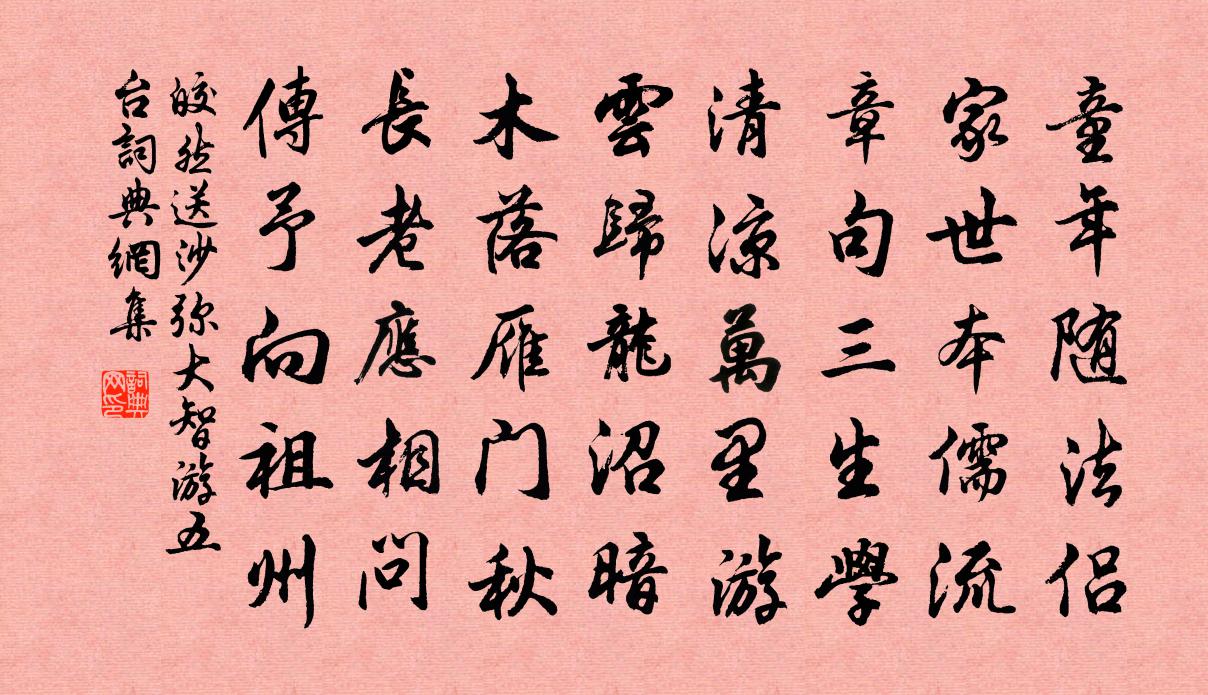 童年随法侣
家世本儒流
章句三生學
清涼萬里游
雲歸龍沼暗
木落雁门秋
長老應相问
傳予向祖州
皎然送沙弥大智游五
台詞典網集
詞典
网印